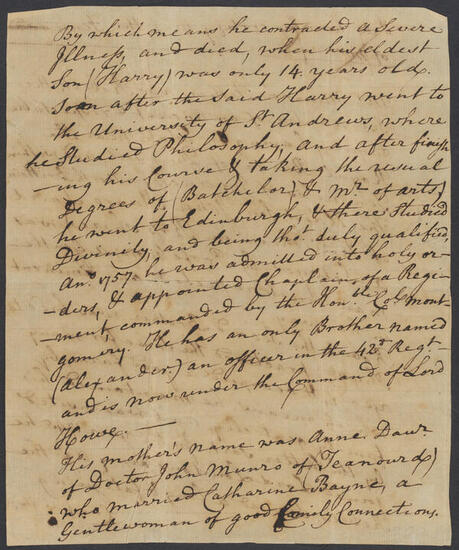 By which means he contracted a Severe
Illness, and died, when his eldest
Son (Harry) was only 14 years old.
Soon after the said Harry went to
the University of St. Andrews, where
he Studied Philosophy, and after finish
-ing his Course & taking the usual
Degrees of (Batchelor) & Mr. of arts)
he went to Edinburgh, & there Studied
Divinity, and being thot. duly qualified
An: 1757 he was admitted into holy or-
-ders, & appointed Chaplain of a Regi-
-ment, commanded by the Honble. Col. Mont-
gomery. He has an only Brother named
(Alexander) an officer in the 42d. Regt-
and is now under the Command of Lord
Howe. —
His mother's name was Anne Daur.
of Doctor John Munro of Teanourd)
who married Catharine Bayne, a
Gentlewoman of good family Connections.